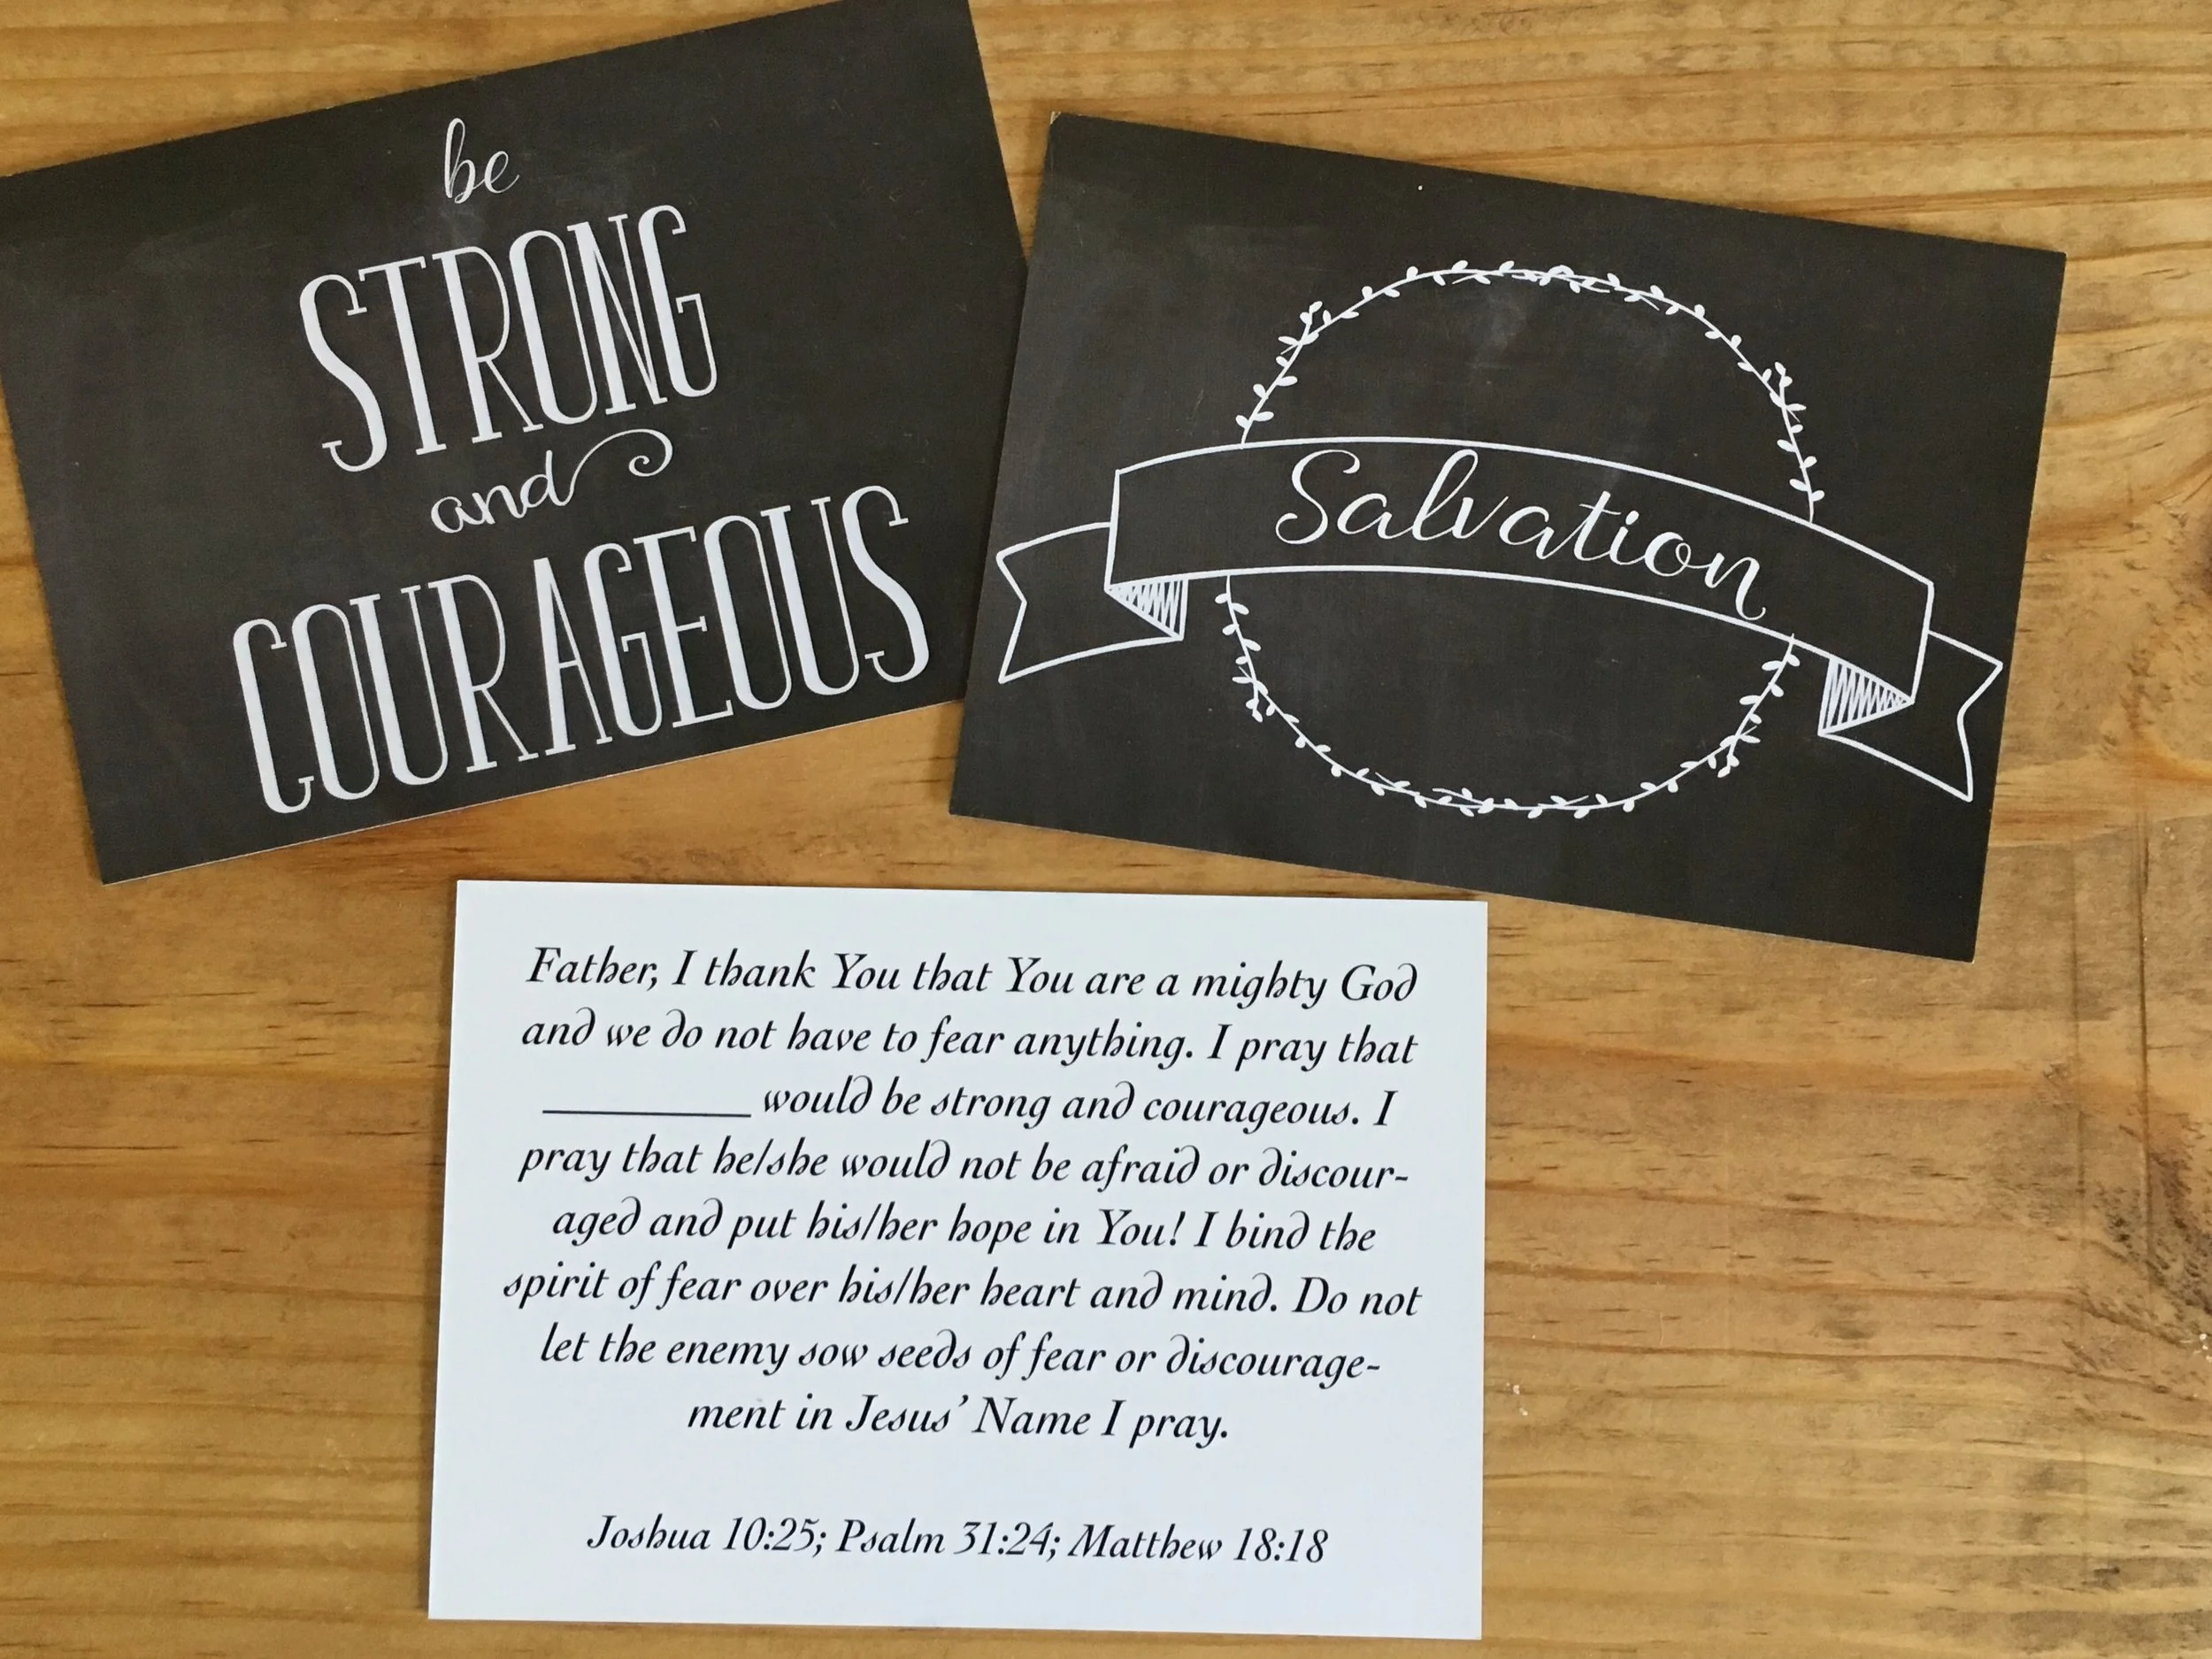 be
STRONG
and
COURAGEOUS
Salvation
Father, I thank You that You are a mighty God
and we do not have to fear anything. I pray that
__________ would be strong and courageous. I
pray that he/she would not be afraid or discour-
aged and put his/her hope in You! I bind the
spirit of fear over his/her heart and mind. Do not
let the enemy sow seeds of fear or discourage-
ment in Jesus' Name I pray.
Joshua 10:25; Psalm 31:24; Matthew 18:18